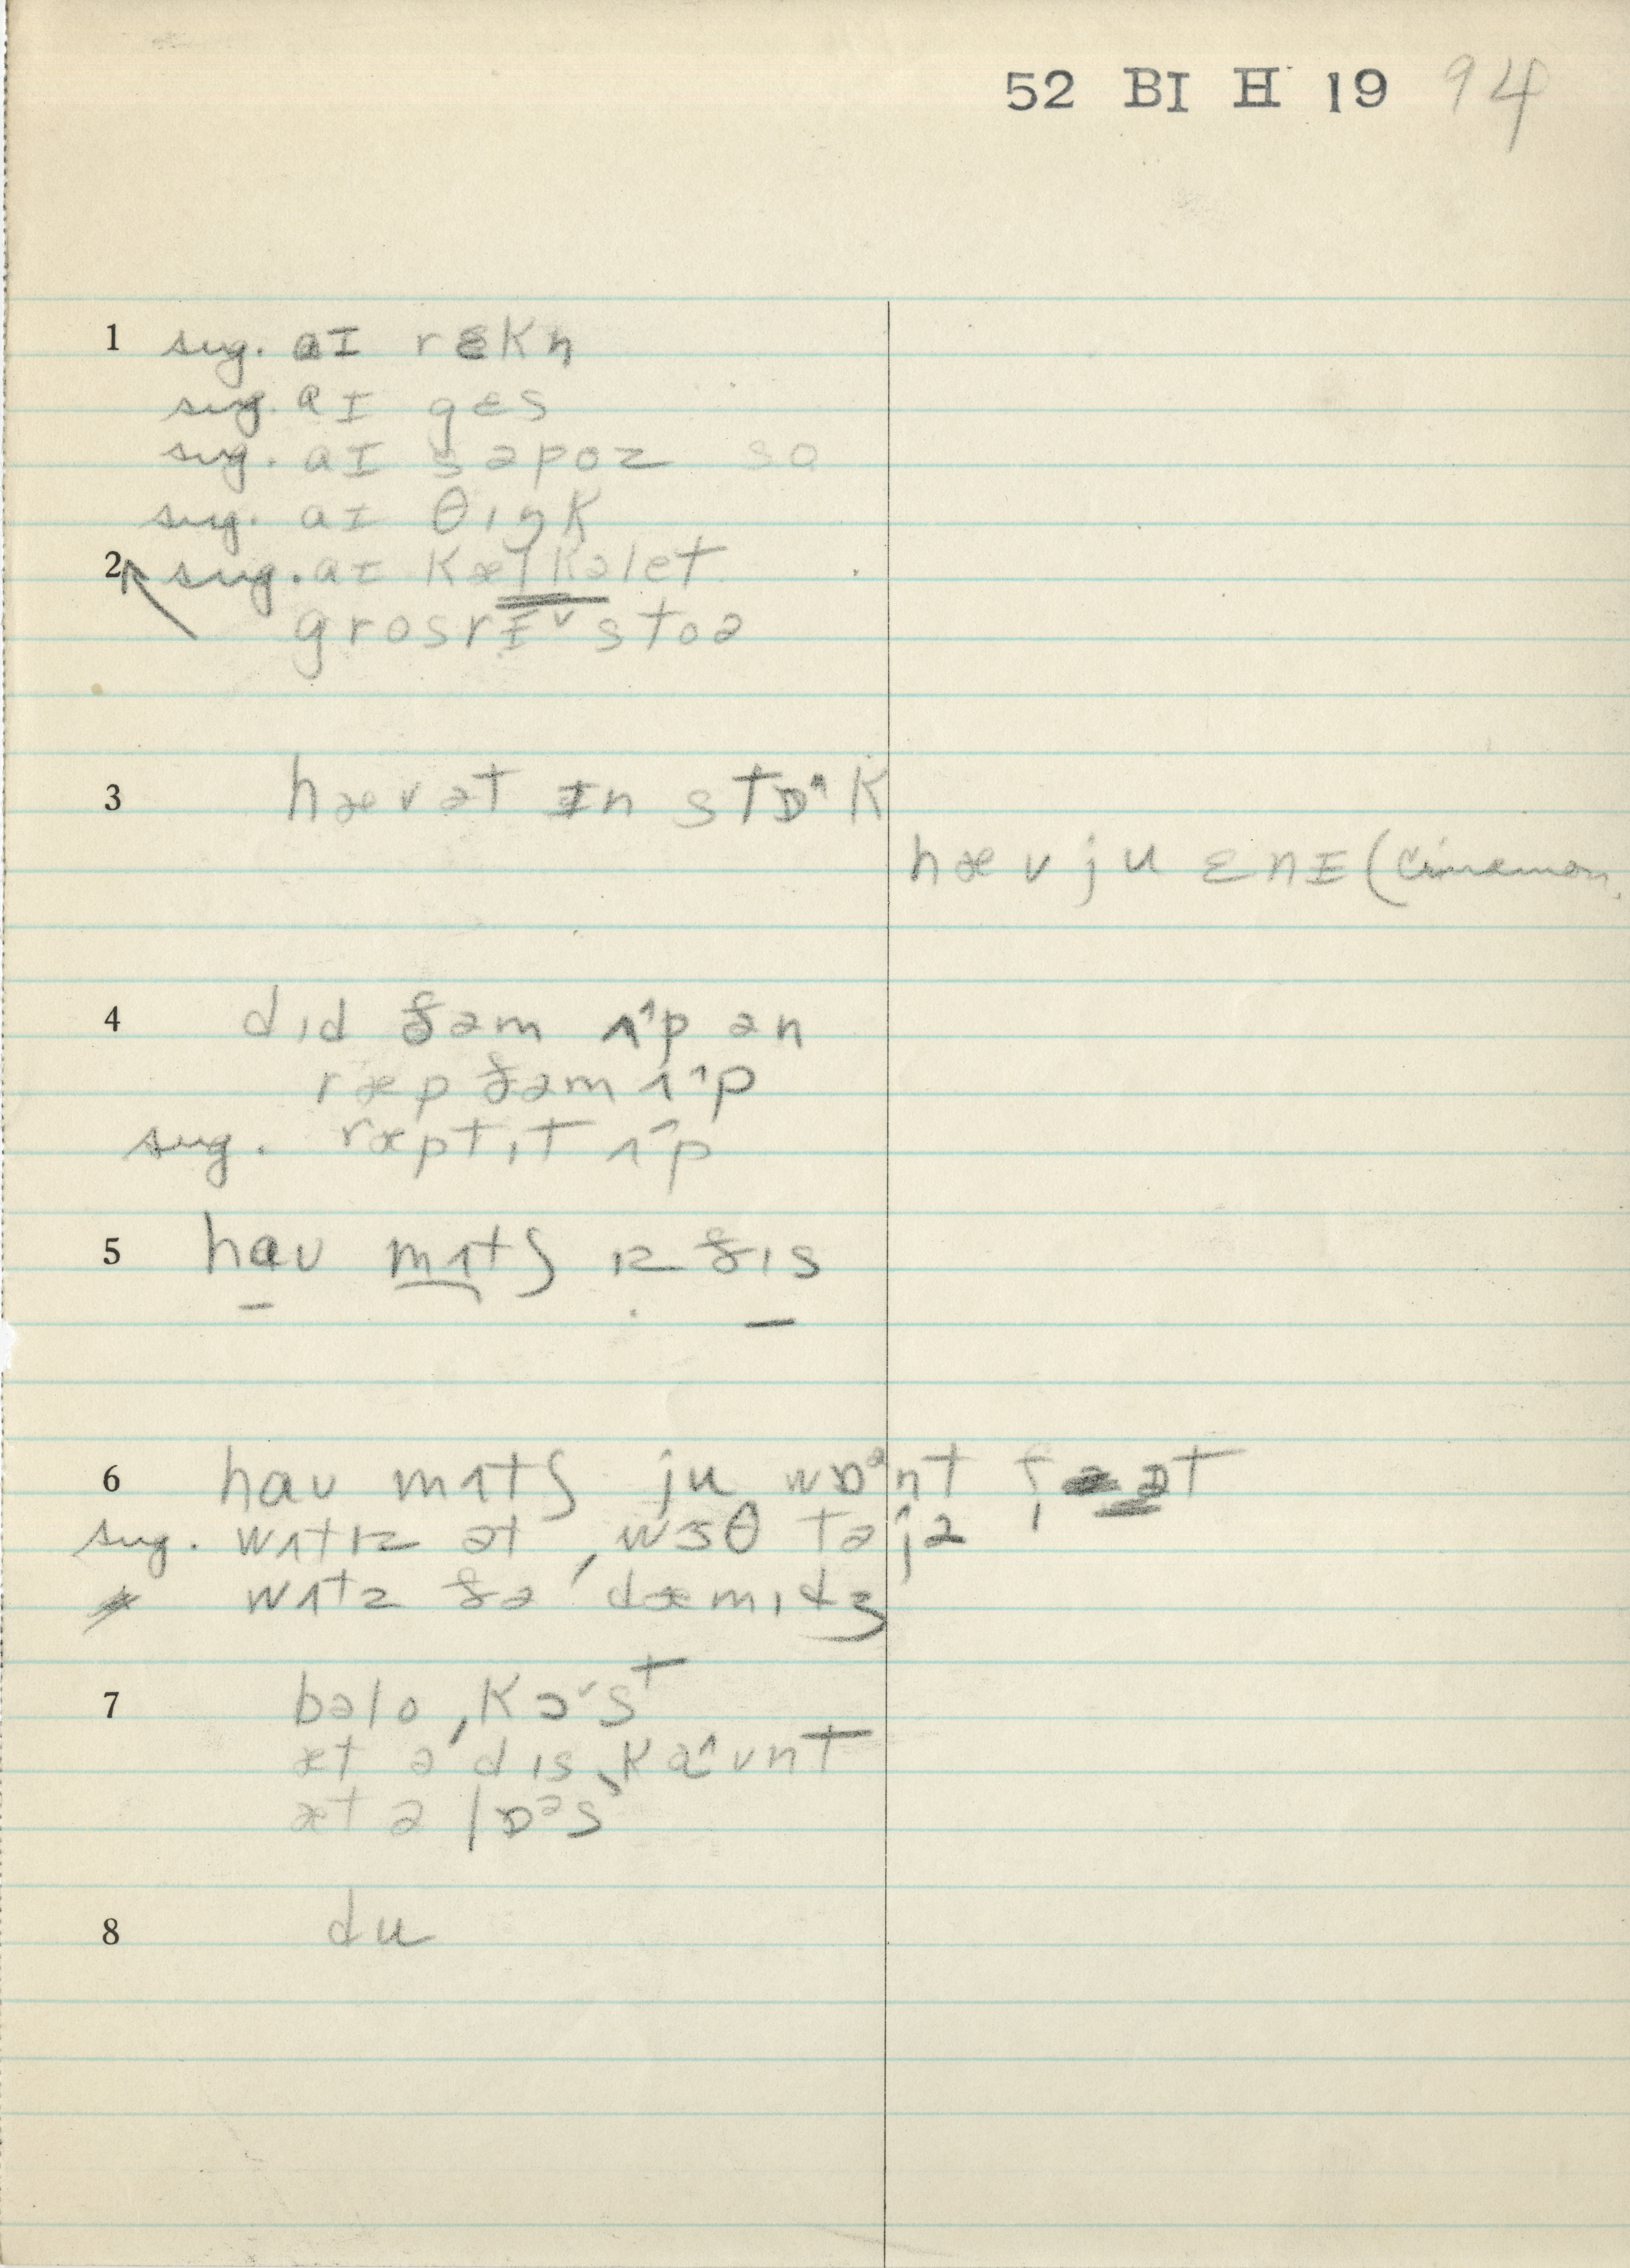 52 BI H 19 94
1 sug. aɪ rɛkn̩
sug. aɪ gɛs
sug. aɪ səpoz so
sug. aɪ θɪŋk
2 sug. aɪ kælkəlet
grosrɪ˅ stoə
3 hæv ət ɪn stɒ^k
hæv ju ɛnɪ (cinnamon,
4 dɪd ðəm ʌ^p ən
ræp ðəm ʌ^p
sug. ræpt ɪt ʌ^p
5 haʊ mʌtʃ ɪz ðɪs
6 haʊ mʌtʃ ju wɒᵊnt f ət
sug. wʌt ɪz ət ˌwɜθ tə jə
wʌtz ðə ˈdæmɪdʒ
7 bəlo ˌkɔ˅st
æt ə ˈdɪsˌka^ʊnt
æt ə lɒᵊs
8 du